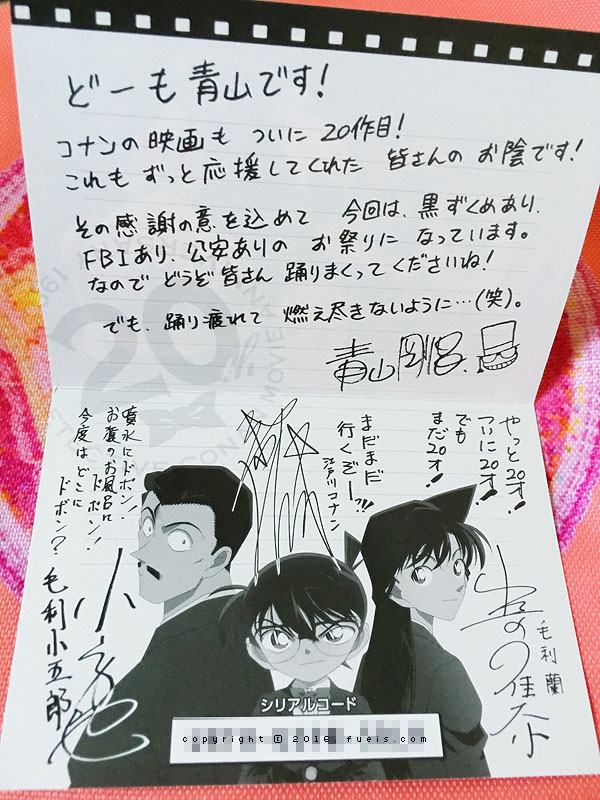 どーも青山です!
コナンの映画も ついに 20作目!
これも ずっと応援してくれた 皆さんの お陰です!
その感謝の意を込めて 今回は、黒ずくめあり、
FBIあり、公安ありの お祭りに なっています。
なので どうぞ皆さん 踊りまくってくださいね!
でも、踊り疲れて 燃え尽きないように…(笑)。
青山剛昌
やっと20才!
ついに20才!
でも
まだ20才!
毛利 蘭
まだまだ
行くぞー!!
江戸川コナン
噴水にドボン!
お寺のお風呂に
ドボン!
今度はどこに
ドボン?
毛利小五郎
シリアルコード
copyright © 2016 fueis.com